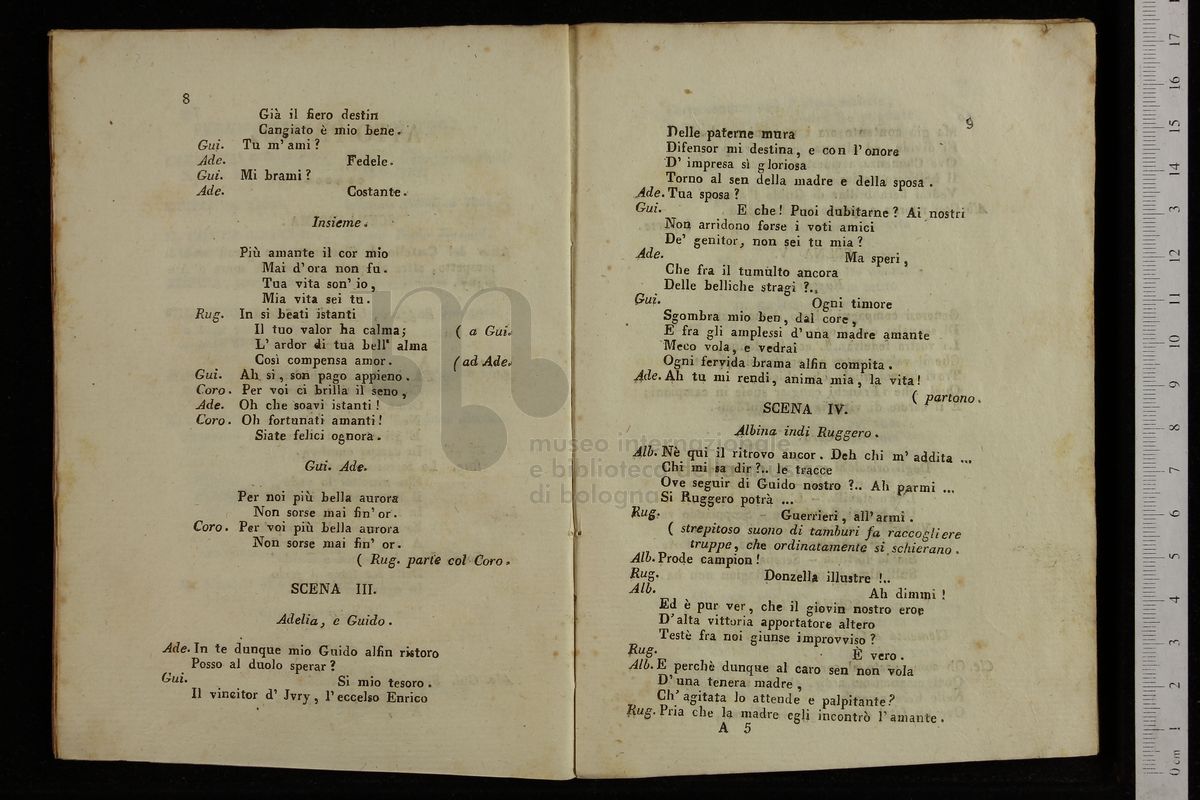 8
Già il fiero destin
Cangiato è mio bene.
Gui. Tu m' ami?
Ade. Fedele.
Gui. Mi brami?
Ade. Costante.
Insieme.
Più amante il cor mio
Mai d' ora non fu.
Tua vita son' io,
Mia vita sei tu.
Rug. In si beati istanti
Il tuo valor ha calma; ( a Gui.
L' ardor di tua bell' alma
Così compensa amor. (ad Ade.
Gui. Ah sì, son pago appieno.
Coro. Per voi ci brilla il seno,
Ade. Oh che soavi istanti!
Coro. Oh fortunati amanti!
Siate felici ognora.
Gui. Ade.
Per noi più bella aurora
Non sorse mai fin' or.
Coro. Per voi più bella aurora
Non sorse mai fin' or.
( Rug. parte col Coro.
SCENA III.
Adelia, e Guido.
Ade. In te dunque mio Guido alfin ristoro
Posso al duolo sperar?
Gui. Si mio tesoro.
Il vincitor d' Jvry, l' eccelso Enrico
9
Delle paterne mura
Difensor mi destina, e con l' onore
D' impresa sì gloriosa
Torno al sen della madre e della sposa.
Ade. Tua sposa?
Gui. E che! Puoi dubitarne? Ai nostri
Non arridono forse i voti amici
De' genitor, non sei tu mia?
Ade. Ma speri,
Che fra il tumulto ancora
Delle belliche stragi?..
Gui. Ogni timore
Sgombra mio ben, dal core,
E fra gli amplessi d' una madre amante
Meco vola, e vedrai
Ogni fervida brama alfin compita.
Ade. Ah tu mi rendi, anima mia, la vita!
( partono.
SCENA IV.
Albina indi Ruggero.
Alb. Nè qui il ritrovo ancor. Deh chi m' addita ...
Chi mi sa dir?.. le tracce
Ove seguir di Guido nostro?.. Ah parmi ...
Si Ruggero potrà ...
Rug. Guerrieri, all' armi.
( strepitoso suono di tamburi fa raccogliere
truppe, che ordinatamente si schierano.
Alb. Prode campion!
Rug. Donzella illustre!..
Alb. Ah dimmi!
Ed è pur ver, che il giovin nostro eroe
D' alta vittoria apportatore altero
Testè fra noi giunse improvviso?
Rug. È vero.
Alb. E perchè dunque al caro sen non vola
D' una tenera madre,
Ch' agitata lo attende e palpitante?
Rug. Pria che la madre egli incontrò l' amante.
A 5
museo internazionale
e biblioteca della musica
di bologna
0 cm 1 2 3 4 5 6 7 8 9 10 11 12 13 14 15 16 17